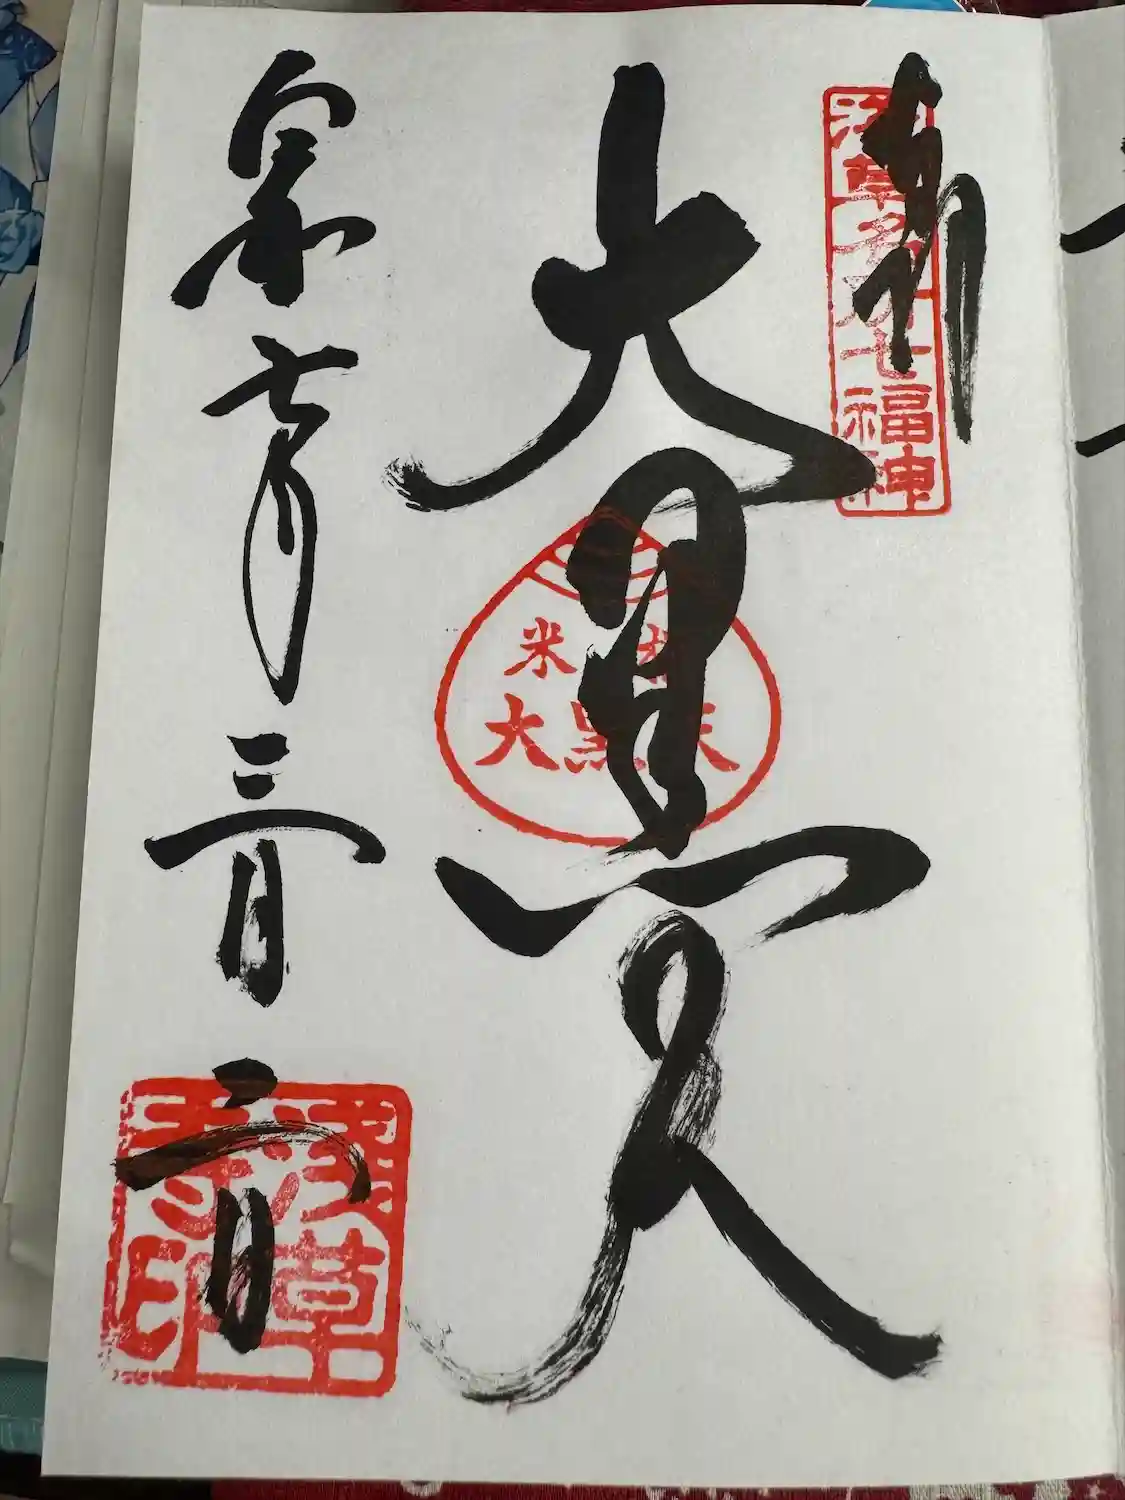 奉拝
浅草名所七福神
大黒天
米櫃
大黒天
令和七年三月二日
淺草
寺印